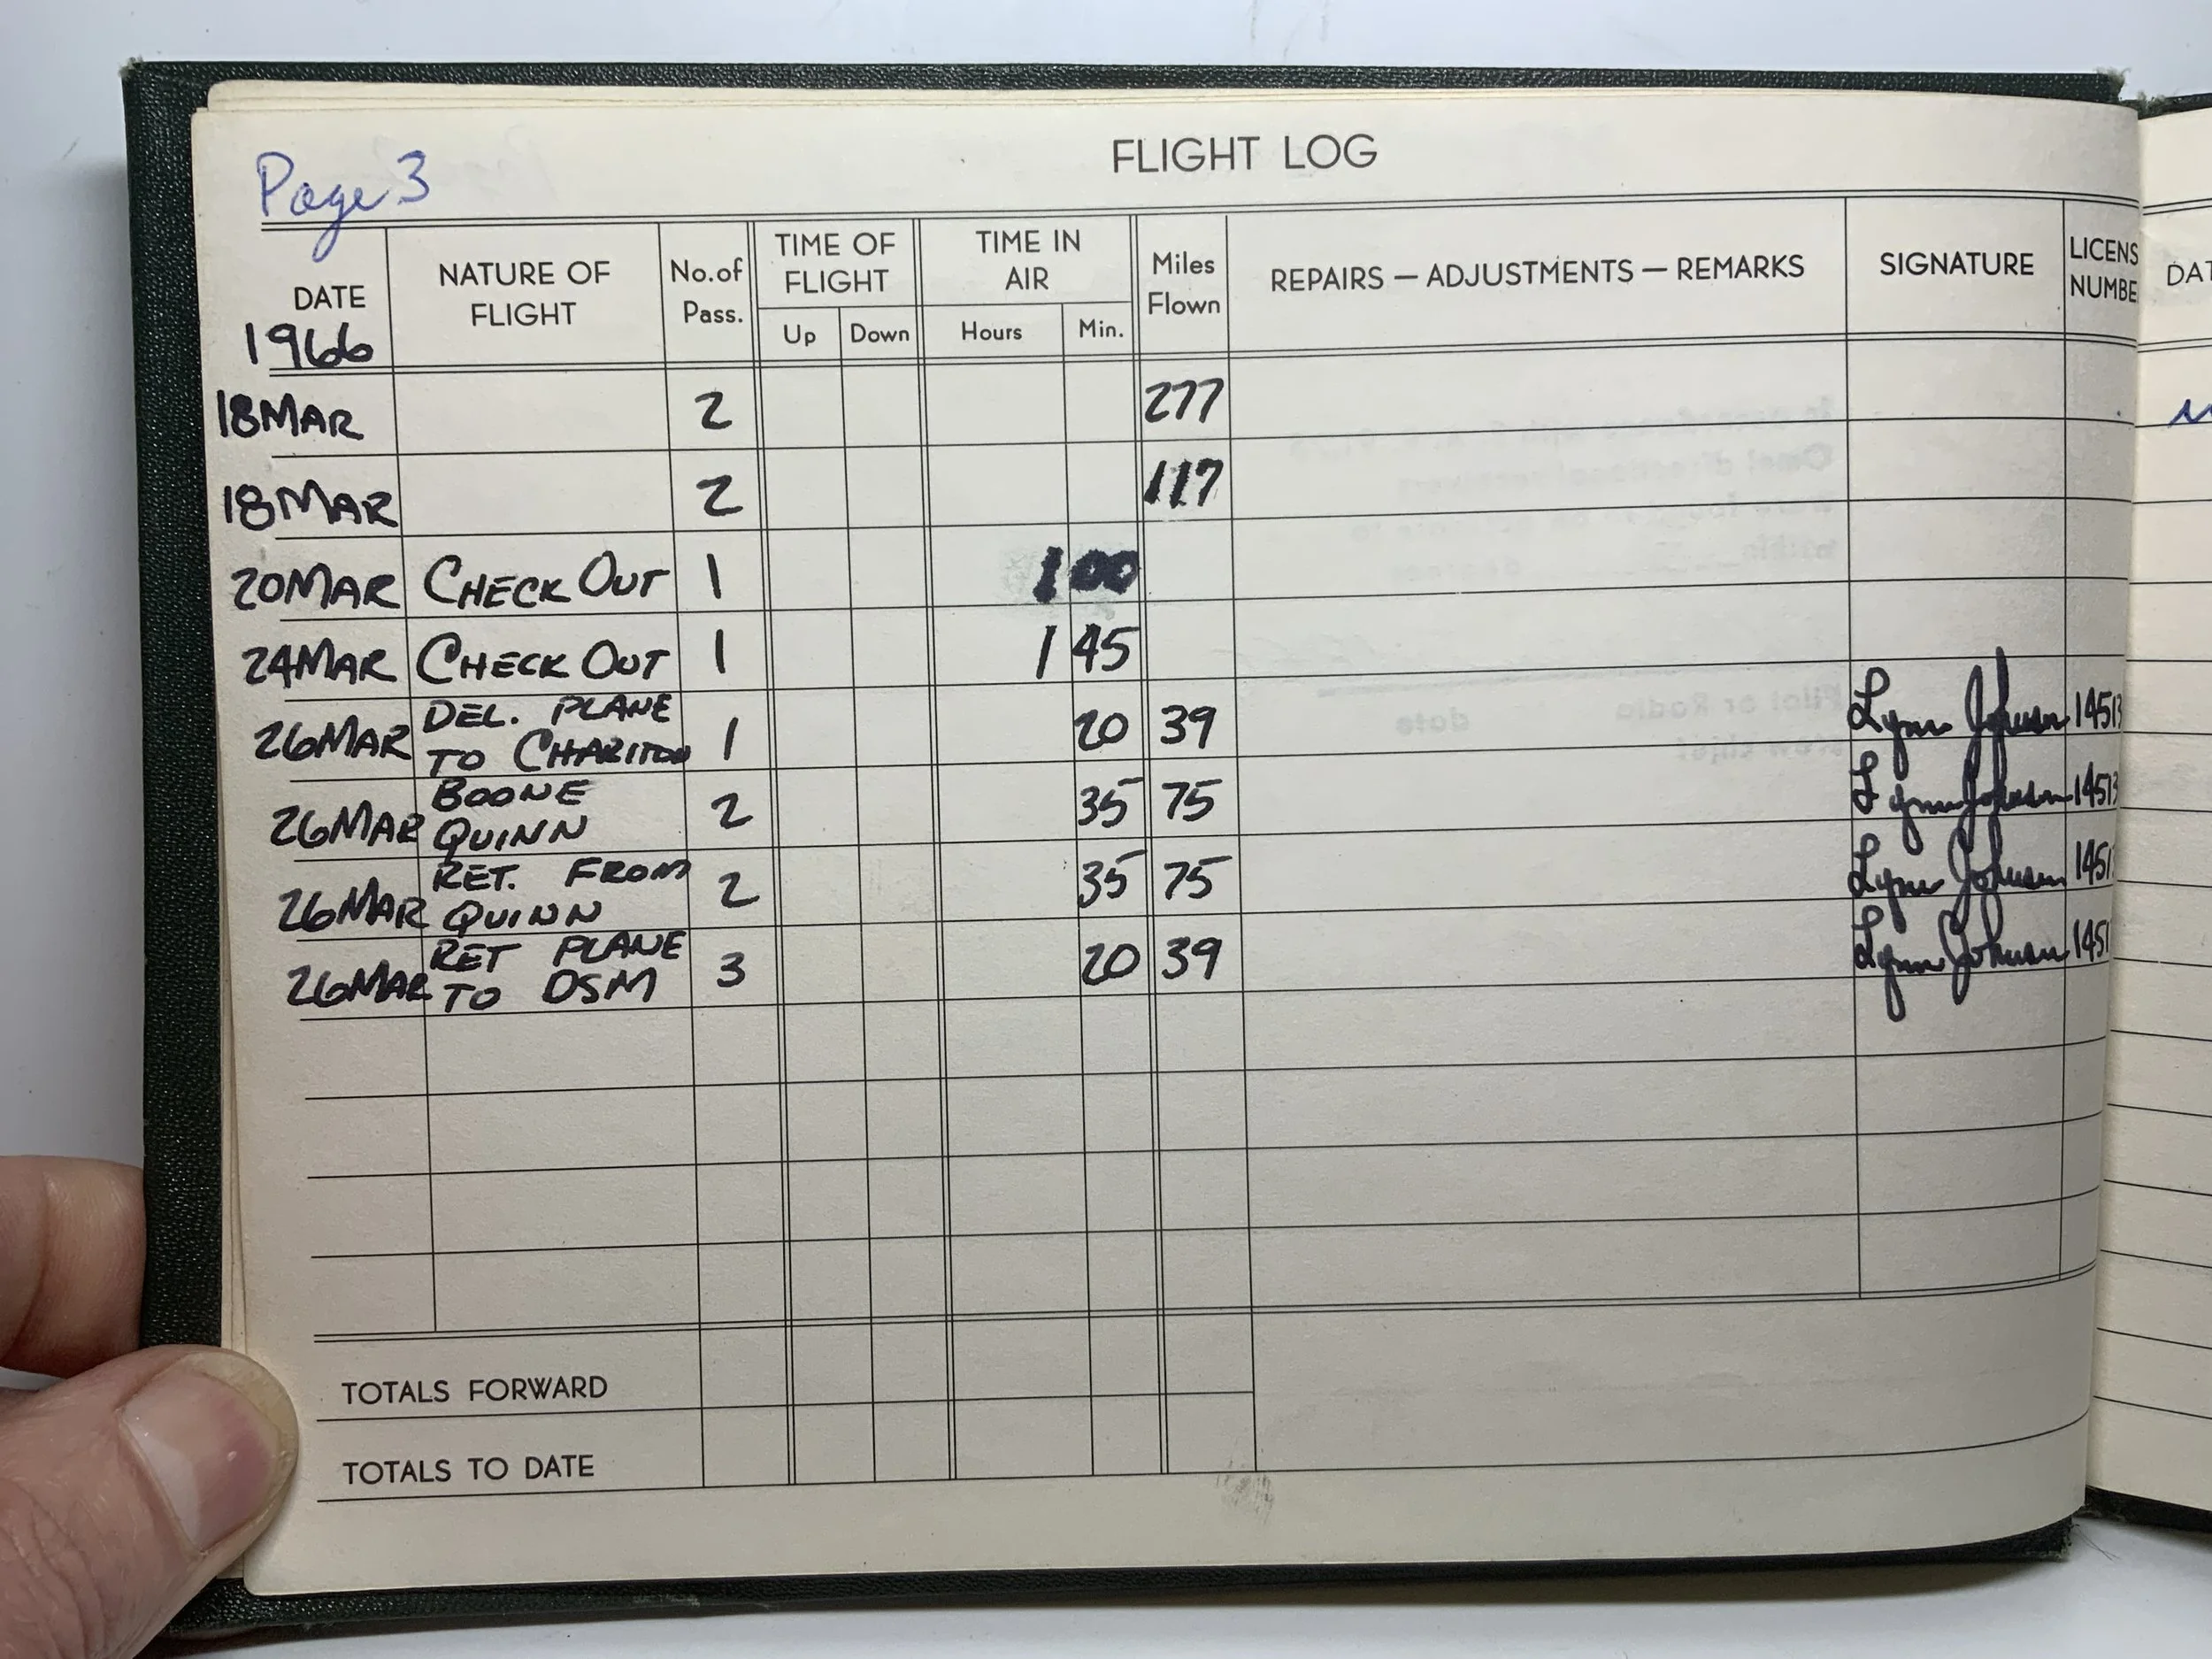 Page 3
FLIGHT LOG
DATE NATURE OF FLIGHT No. of Pass. TIME OF FLIGHT Up Down TIME IN AIR Hours Min. Miles Flown REPAIRS — ADJUSTMENTS — REMARKS SIGNATURE LICENS NUMBE DAT
1966
18 MAR 2 277
18 MAR 2 117
20 MAR CHECK OUT 1 1 00
24 MAR CHECK OUT 1 1 45
26 MAR DEL. PLANE TO CHARITON 1 20 39 Lynn Johnson 14513
26 MAR BOONE QUINN 2 35 75 Lynn Johnson 14513
26 MAR RET. FROM QUINN 2 35 75 Lynn Johnson 1451
26 MAR RET PLANE TO DSM 3 20 39 Lynn Johnson 1451
TOTALS FORWARD
TOTALS TO DATE